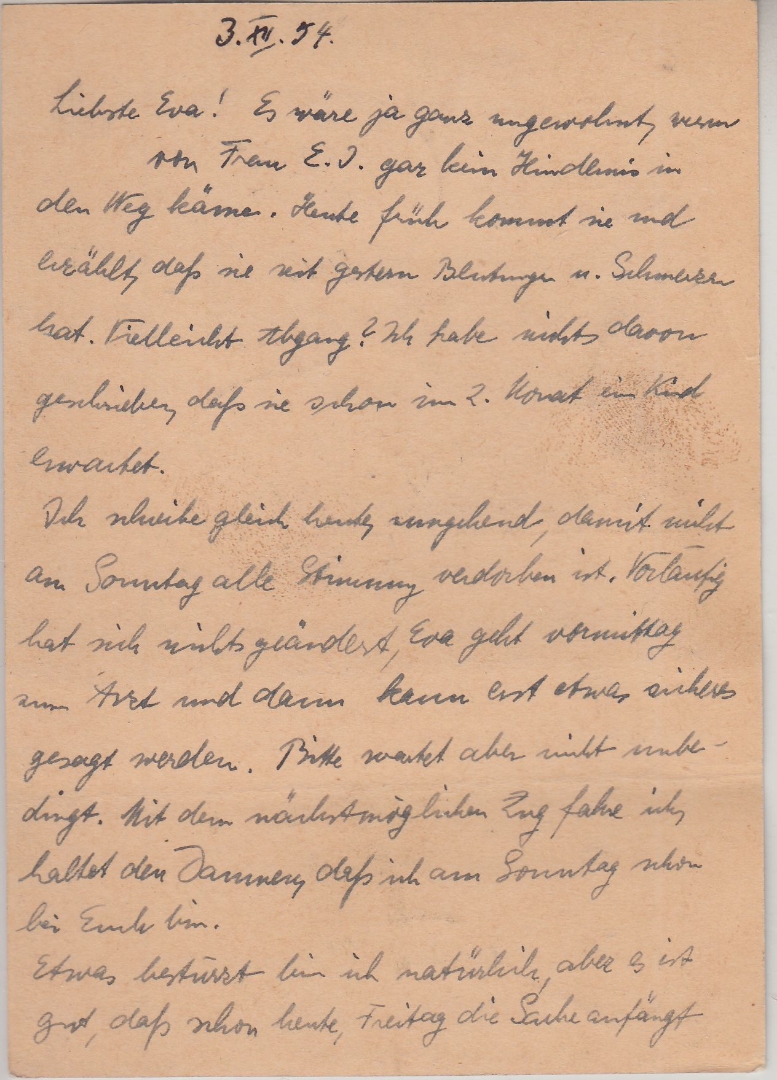 3.XII.54.
Liebste Eva! Es wäre ja ganz ungewohnt, wenn
von Frau E. J. gar kein Hindernis in
den Weg käme. Heute früh kommt sie und
erzählt, daß sie seit gestern Blutungen u. Schmerzen
hat. Vielleicht Abgang? Ich habe nichts davon
geschrieben, daß sie schon im 2. Monat ein Kind
erwartet.
Ich schreibe gleich heute, umgehend, damit nicht
am Sonntag alle Stimmung verdorben ist. Vorläufig
hat sich nichts geändert, Eva geht vormittag
zum Arzt und dann kann erst etwas sicheres
gesagt werden. Bitte wartet aber nicht unbe-
dingt. Mit dem nächstmöglichen Zug fahre ich,
haltet den Daumen, daß ich am Sonntag schon
bei Euch bin.
Etwas bestürzt bin ich natürlich, aber es ist
gut, daß schon heute, Freitag die Sache anfängt